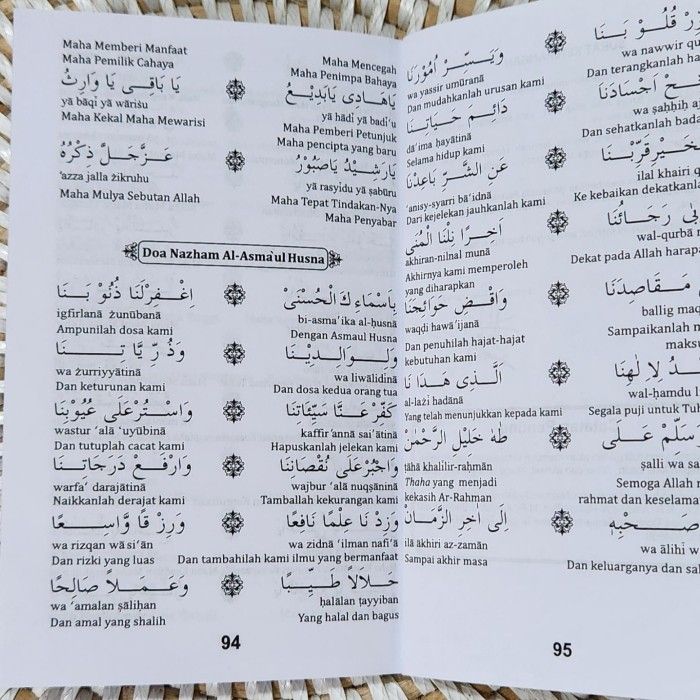 Maha Mencegah
Maha Penimpa Bahaya
Maha Memberi Manfaat
Maha Pemilik Cahaya
يَاهَادِى يَابَدِيْعُ
yā hādī yā badī'u
Maha Pemberi Petunjuk
Maha pencipta yang baru
يَا بَاقِى يَا وَارِثُ
yā bāqī yā wāriṡu
Maha Kekal Maha Mewarisi
يَارَشِيْدُ يَاصَبُوْرُ
yā rasyīdu yā ṣabūru
Maha Tepat Tindakan-Nya
Maha Penyabar
عَزَّجَلَّ ذِكْرُهُ
'azza jalla żikruhu
Maha Mulya Sebutan Allah
Doa Nazham Al-Asma`ul Husna
بِاَسْمَاءِكَ الْحُسْنٰى
bi-asma'ika al-ḥusnā
Dengan Asmaul Husna
اِغْفِرْلَنَا ذُنُوْبَنَا
igfirlanā żunūbanā
Ampunilah dosa kami
وَلِوَالِدِيْنَا
wa liwālidinā
Dan dosa kedua orang tua
وَذُرِّيَّاتِنَا
wa żurriyyātinā
Dan keturunan kami
كَفِّرْعَنَّا سَيِّئَاتِنَا
kaffir'annā sai'ātinā
Hapuskanlah jelekan kami
وَاسْتُرْعَلَى عُيُوْبِنَا
wastur 'alā 'uyūbinā
Dan tutuplah cacat kami
وَاجْبُرْعَلَى نُقْصَانِنَا
wajbur 'alā nuqṣāninā
Tamballah kekurangan kami
وَارْفَعْ دَرَجَاتِنَا
warfa' darajātinā
Naikkanlah derajat kami
وَزِدْنَا عِلْمًا نَافِعًا
wa zidnā 'ilman nafi'ā
Dan tambahilah kami ilmu yang bermanfaat
وَرِزْقًا وَّاسِعًا
wa rizqan wāsi'ān
Dan rizki yang luas
حَلَالًا طَيِّبًا
ḥalālan ṭayyiban
Yang halal dan bagus
وَعَمَلًا صَالِحًا
wa 'amalan ṣāliḥan
Dan amal yang shalih
94
قُلُوْبَنَا
wa nawwir qu
Dan terangkanlah ha
وَيَسِّرْ اُمُوْرَنَا
wa yassir umūranā
Dan mudahkanlah urusan kami
اَجْسَادَنَا
wa ṣaḥḥiḥ aj
Dan sehatkanlah bada
دَائِمَ حَيَاتِنَا
dā'ima ḥayātinā
Selama hidup kami
قَرِّبْنَا
ilal khairi q
Ke kebaikan dekatkanl
عَنِ الشَّرِّ بَاعِدْنَا
'anisy-syarri bā'idnā
Dari kejelekan jauhkanlah kami
رَجَائُنَا
wal-qurbā
Dekat pada Allah harapa
اَخِيْرًا نِلْنَا الْمُنٰى
akhiran-nilnal munā
Akhirnya kami memperoleh
yang diharapkan
مَقَاصِدَنَا
ballig maq
Sampaikanlah
maksu
وَاقْضِ حَوَائِجَنَا
waqdi hawā'ijanā
Dan penuhilah hajat-hajat
kebutuhan kami
لِاِلٰهِنَا
wal-ḥamdu l
Segala puji untuk Tu
الَّذِى هَدَانَا
al-lażi hadānā
Yang telah menunjukkan kepada kami
سَلِّمْ عَلَى
ṣalli wa sa
Semoga Allah
rahmat dan keselama
طٰهٰ خَلِيْلِ الرَّحْمٰنْ
ṭāhā khalilir-raḥmān
Thaha yang menjadi
kekasih Ar-Rahman
صَحْبِهِ
wa ālihī w
Dan keluarganya dan sa
اِلَى اٰخِرِ الزَّمَانْ
ilā ākhiri az-zamān
Sampai akhir masa
95